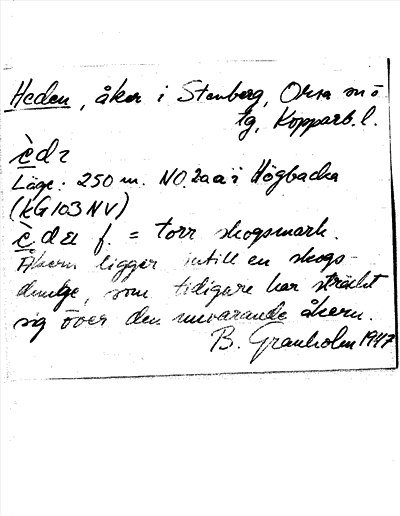 Heden, åker i Stenberg, Orsa sn ö
tg, Kopparb. l.
èdz
Läge: 250 m. NO 2aa i Högbacka
(KG 103 NV)
è dei f. = torr skogsmark.
Åkern ligger intill en skogs-
dunge, som tidigare har sträckt
sig över den nuvarande åkern.
B. Granholm 1947